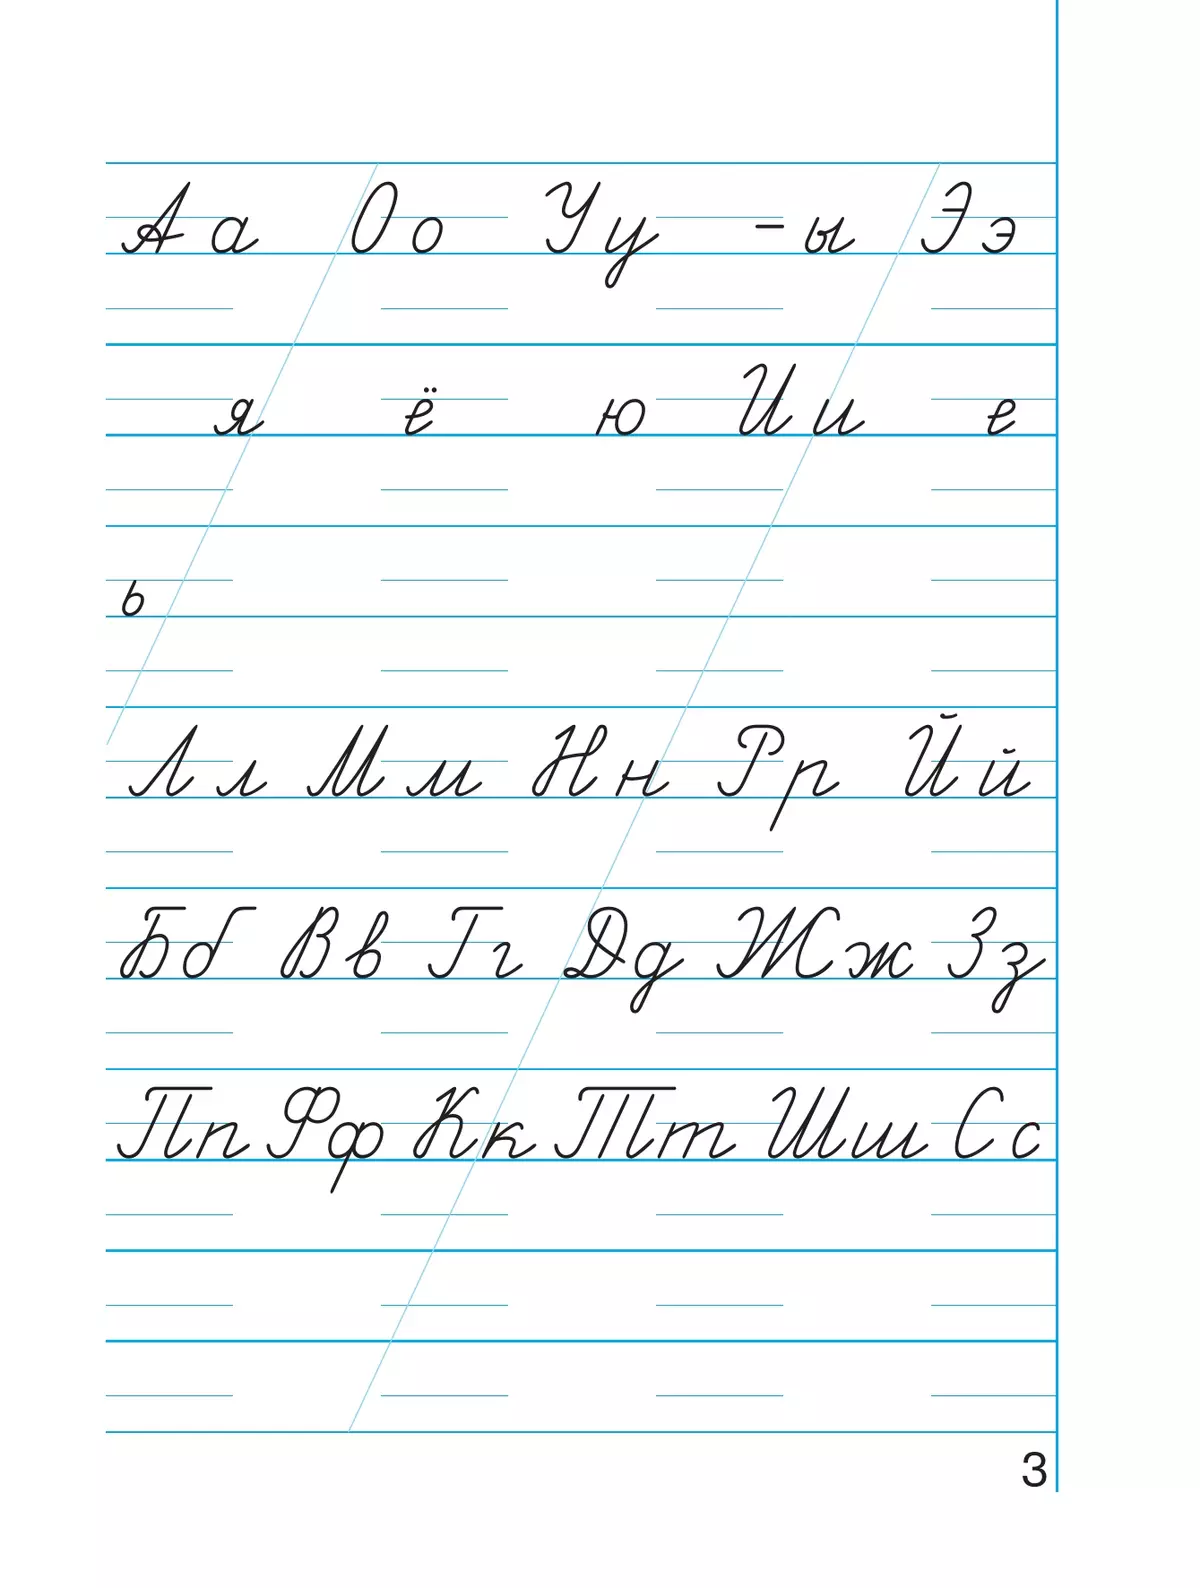 А а О о У у - ы Э э
я ё ю И и е
ь
Л л М м Н н Р р Й й
Б б В в Г г Д д Ж ж З з
П п Ф ф К к Т т Ш ш С с
3